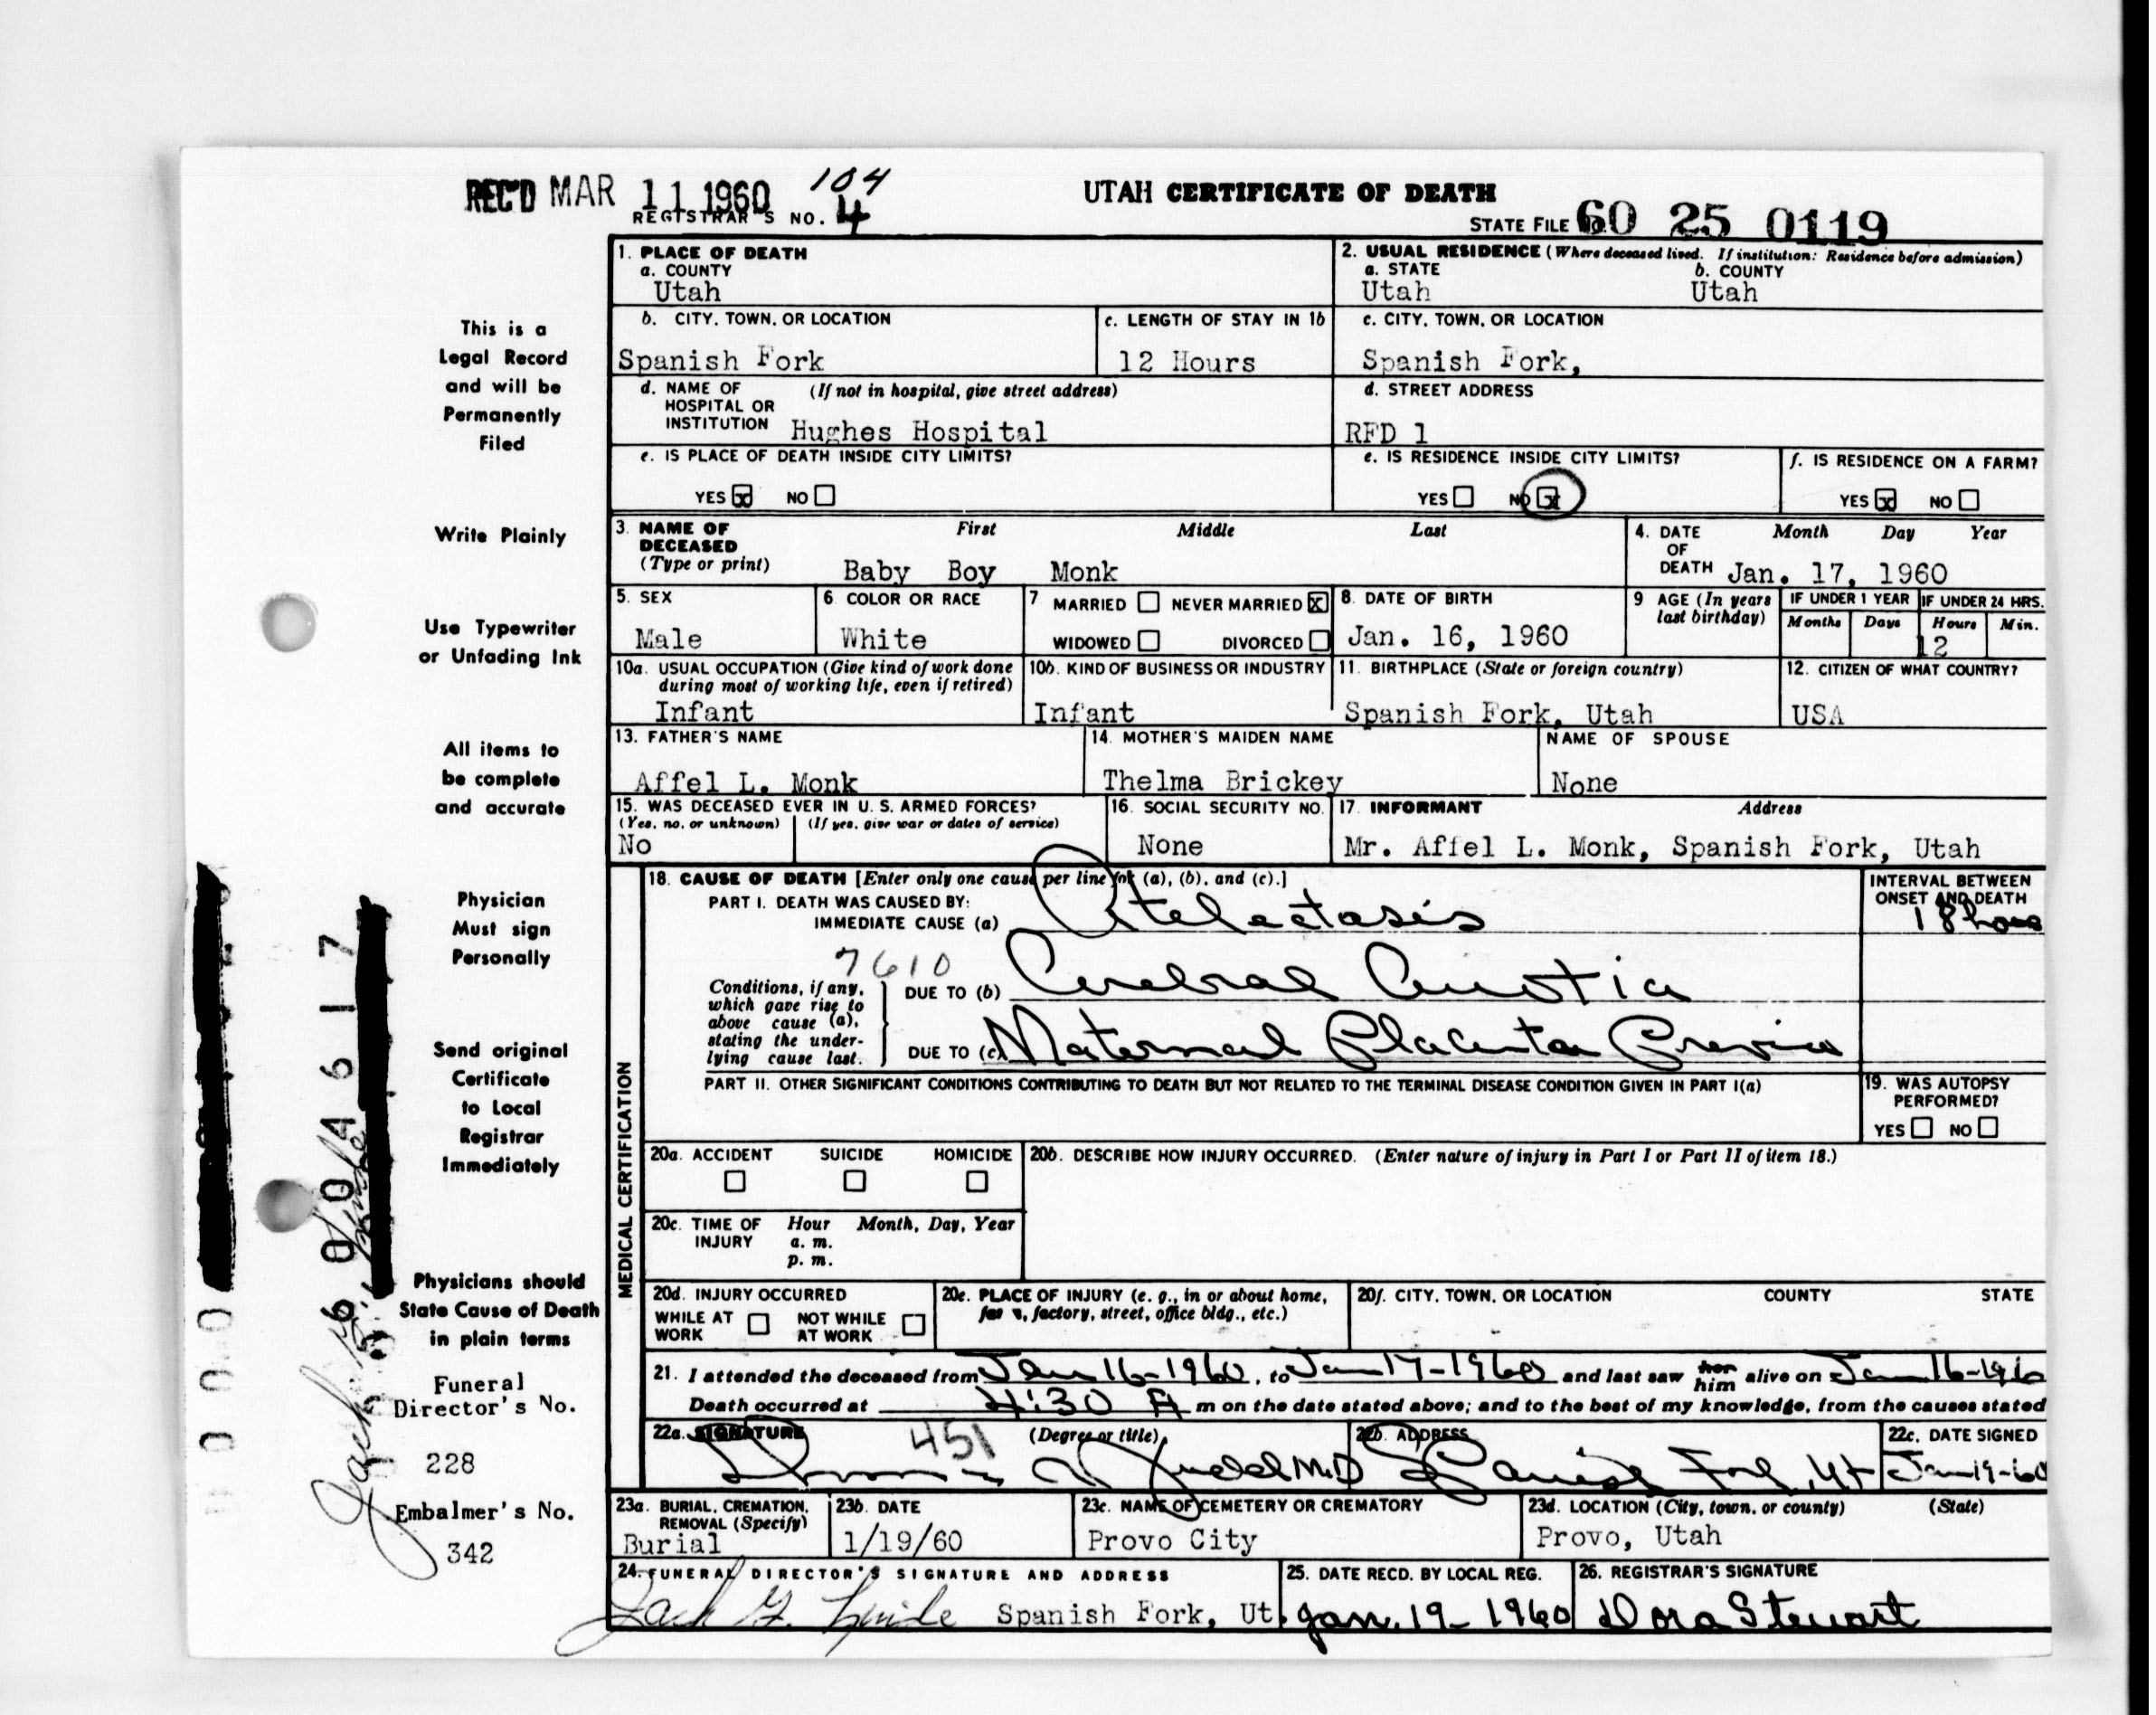 REC'D MAR 11 1960
104
REGISTRAR'S NO. 4
UTAH CERTIFICATE OF DEATH
STATE FILE 60 25 0119
1. PLACE OF DEATH
a. COUNTY
Utah
2. USUAL RESIDENCE (Where deceased lived. If institution: Residence before admission)
a. STATE b. COUNTY
Utah Utah
b. CITY, TOWN, OR LOCATION
Spanish Fork
c. LENGTH OF STAY IN 1b
12 Hours
c. CITY, TOWN, OR LOCATION
Spanish Fork,
d. NAME OF (If not in hospital, give street address)
HOSPITAL OR
INSTITUTION Hughes Hospital
d. STREET ADDRESS
RFD 1
e. IS PLACE OF DEATH INSIDE CITY LIMITS?
YES x NO
e. IS RESIDENCE INSIDE CITY LIMITS?
YES NO x
f. IS RESIDENCE ON A FARM?
YES x NO
3. NAME OF First Middle Last
DECEASED
(Type or print) Baby Boy Monk
4. DATE Month Day Year
OF
DEATH Jan. 17, 1960
5. SEX
Male
6. COLOR OR RACE
White
7 MARRIED NEVER MARRIED X
WIDOWED DIVORCED
8. DATE OF BIRTH
Jan. 16, 1960
9 AGE (In years
last birthday)
IF UNDER 1 YEAR IF UNDER 24 HRS.
Months Days Hours Min.
12
10a. USUAL OCCUPATION (Give kind of work done
during most of working life, even if retired)
Infant
10b. KIND OF BUSINESS OR INDUSTRY
Infant
11. BIRTHPLACE (State or foreign country)
Spanish Fork, Utah
12. CITIZEN OF WHAT COUNTRY?
USA
13. FATHER'S NAME
Affel L. Monk
14. MOTHER'S MAIDEN NAME
Thelma Brickey
NAME OF SPOUSE
None
15. WAS DECEASED EVER IN U. S. ARMED FORCES?
(Yes, no, or unknown) (If yes, give war or dates of service)
No
16. SOCIAL SECURITY NO.
None
17. INFORMANT Address
Mr. Affel L. Monk, Spanish Fork, Utah
MEDICAL CERTIFICATION
18. CAUSE OF DEATH [Enter only one cause per line for (a), (b), and (c).]
PART I. DEATH WAS CAUSED BY:
IMMEDIATE CAUSE (a) Atelectasis
INTERVAL BETWEEN
ONSET AND DEATH
18 hours
7610
Conditions, if any,
which gave rise to
above cause (a),
stating the under-
lying cause last.
DUE TO (b) Cerebral
DUE TO (c) Maternal Placenta Previa
PART II. OTHER SIGNIFICANT CONDITIONS CONTRIBUTING TO DEATH BUT NOT RELATED TO THE TERMINAL DISEASE CONDITION GIVEN IN PART I(a)
19. WAS AUTOPSY
PERFORMED?
YES NO
20a. ACCIDENT SUICIDE HOMICIDE
20b. DESCRIBE HOW INJURY OCCURRED. (Enter nature of injury in Part I or Part II of item 18.)
20c. TIME OF Hour Month, Day, Year
INJURY a. m.
p. m.
20d. INJURY OCCURRED
WHILE AT NOT WHILE
WORK AT WORK
20e. PLACE OF INJURY (e. g., in or about home,
farm, factory, street, office bldg., etc.)
20f. CITY, TOWN, OR LOCATION COUNTY STATE
21. I attended the deceased from Jan 16-1960, to Jan 17-1960 and last saw her him alive on Jan 16-1960
Death occurred at 4:30 A m on the date stated above; and to the best of my knowledge, from the causes stated
22a. SIGNATURE 451 (Degree or title)
Judd M.D
22b. ADDRESS
Spanish Fork, Ut
22c. DATE SIGNED
Jan 19-60
23a. BURIAL, CREMATION,
REMOVAL (Specify)
Burial
23b. DATE
1/19/60
23c. NAME OF CEMETERY OR CREMATORY
Provo City
23d. LOCATION (City, town, or county) (State)
Provo, Utah
24. FUNERAL DIRECTOR'S SIGNATURE AND ADDRESS
Jack G. Spanish Fork, Ut.
25. DATE RECD. BY LOCAL REG.
Jan. 19-1960
26. REGISTRAR'S SIGNATURE
Dora Stewart
This is a
Legal Record
and will be
Permanently
Filed
Write Plainly
Use Typewriter
or Unfading Ink
All items to
be complete
and accurate
Physician
Must sign
Personally
Send original
Certificate
to Local
Registrar
Immediately
Physicians should
State Cause of Death
in plain terms
Funeral
Director's No.
228
Embalmer's No.
342